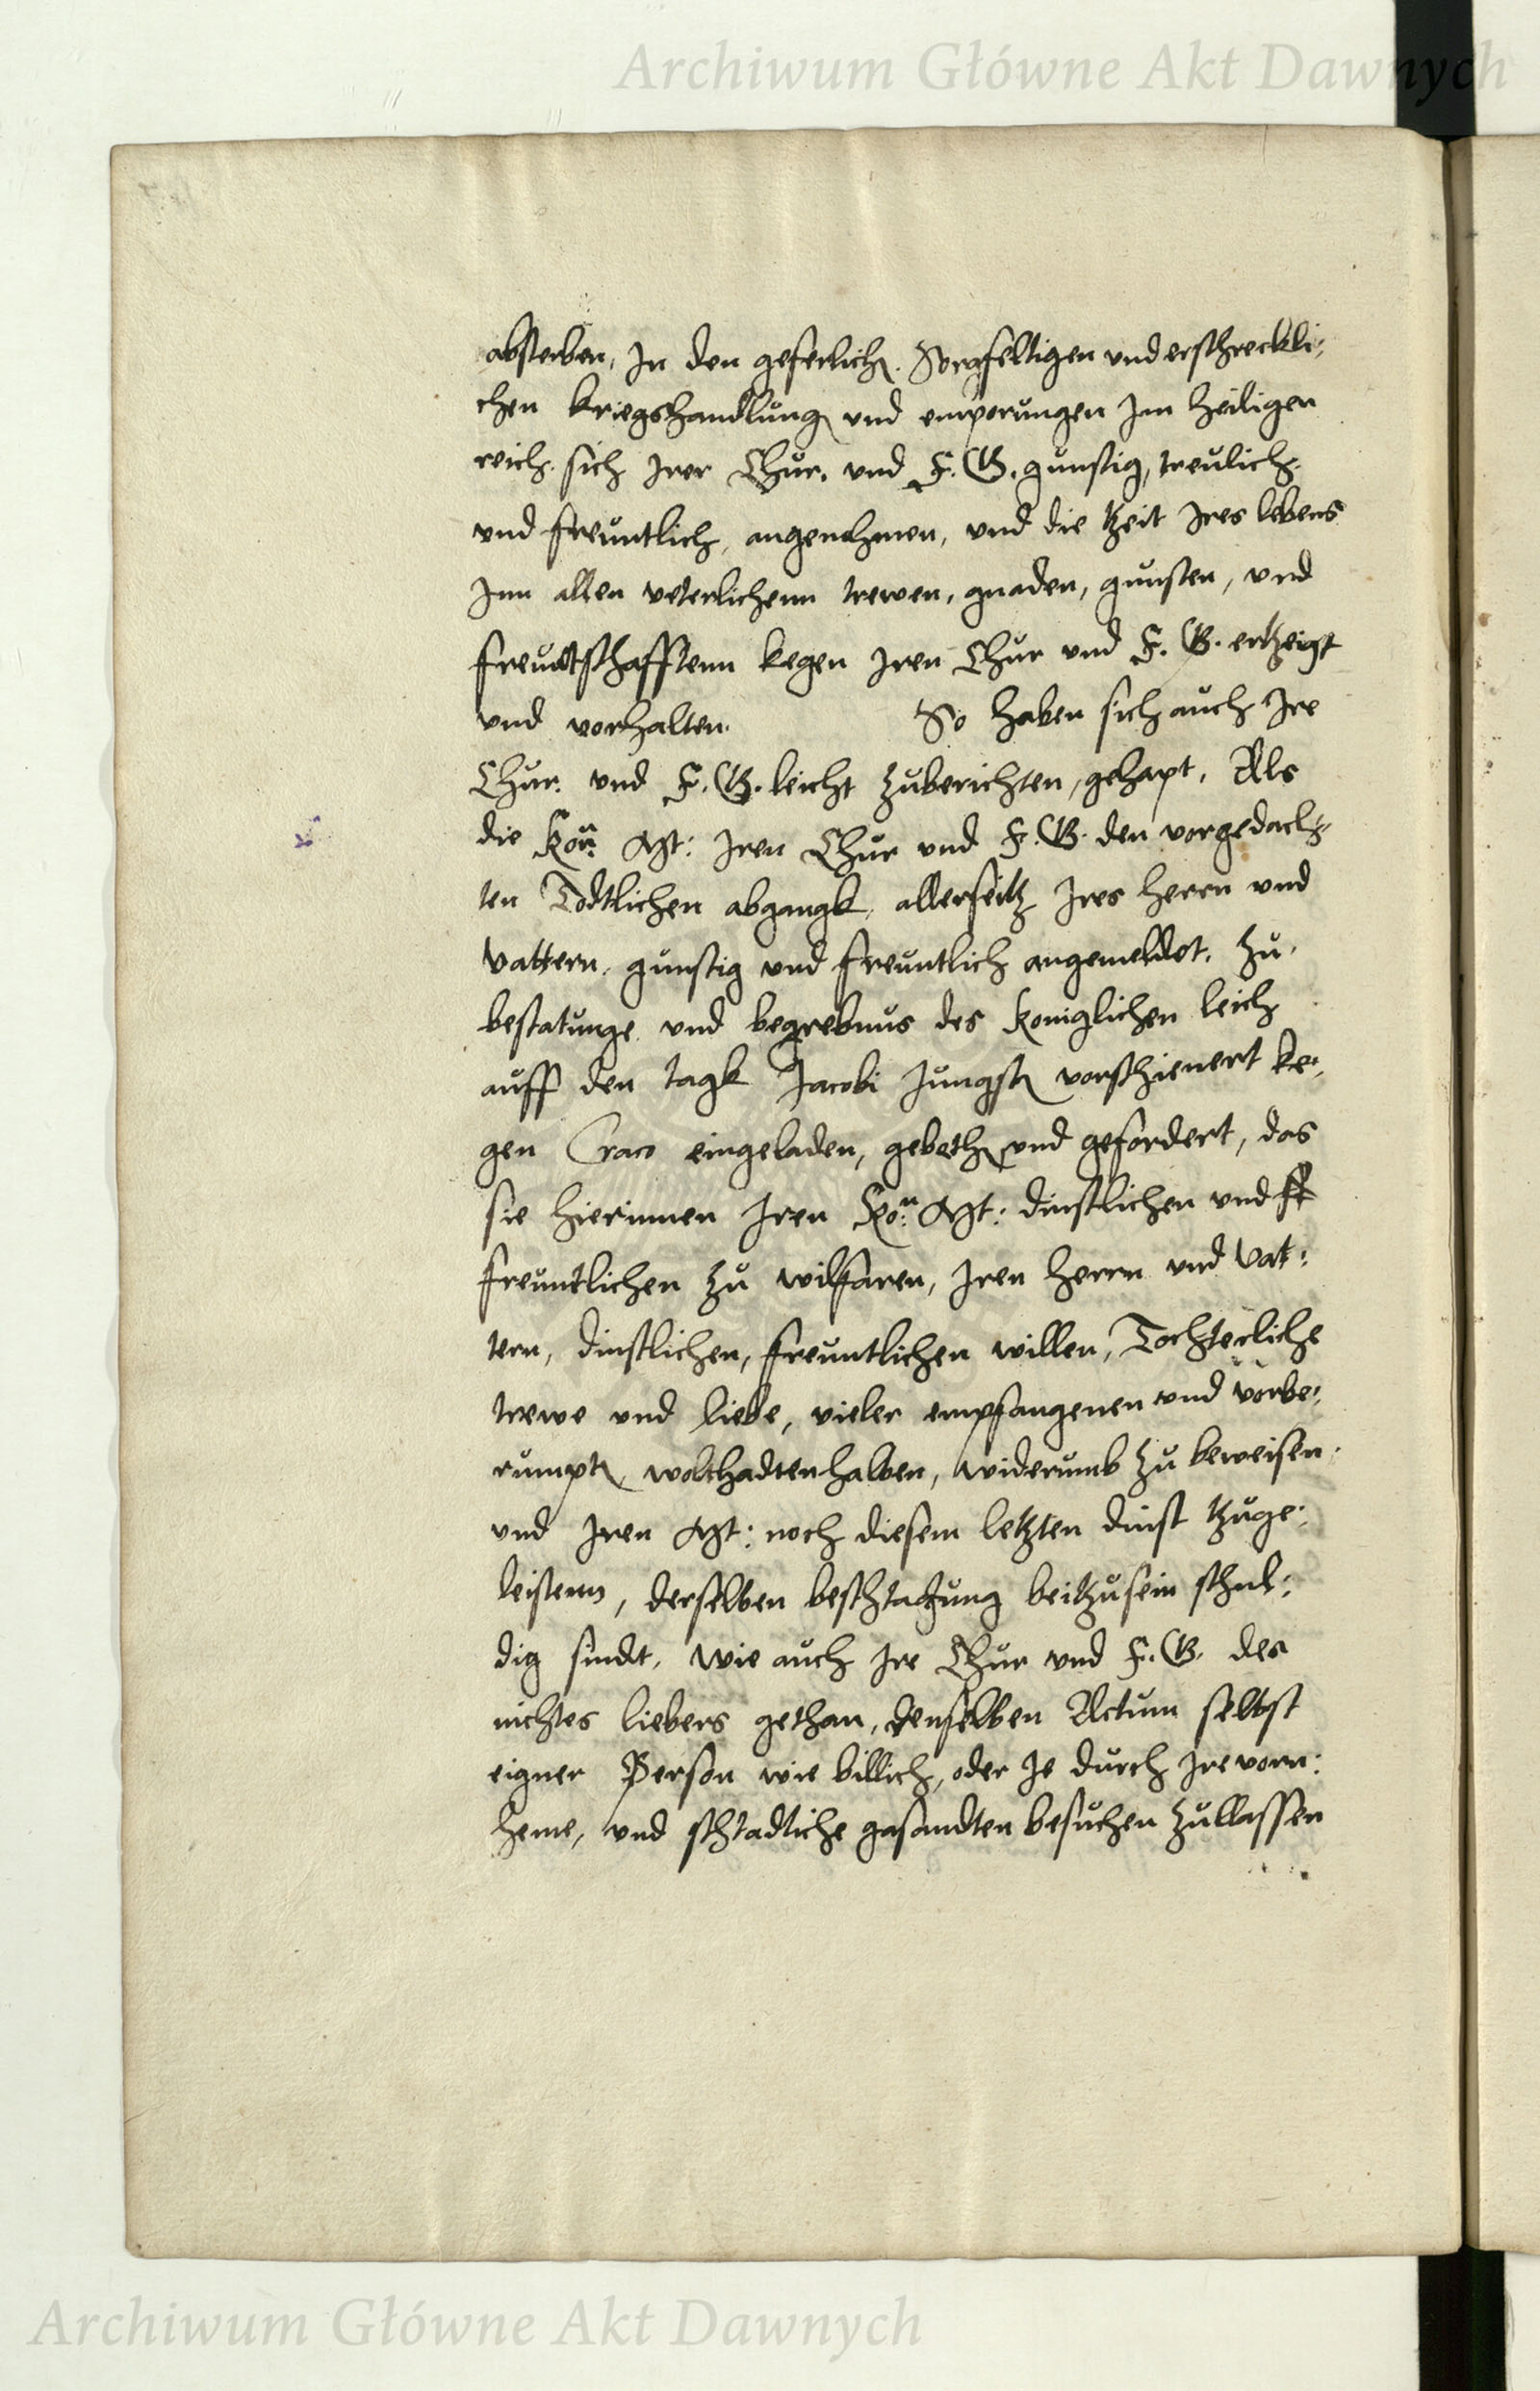 Archiwum Główne Akt Dawnych
absterben, In den geferlich. Sorgfeltigen und erschreckli:
chen kriegshandlung und emporungen Im heiligen
reich. sich Irer Chur. und F. G. gunstig, treulich.
und freuntlich, angenohmen, und die tzeit Ires lebens
Inn allen veterlichenn trewen, gnaden, gunsten, und
freuntschafftenn kegen Iren Chur und F. G. ertzeigt
und vorhalten. So haben sich auch Ire
Chur. und F. G. leicht zuberichten, gehapt, Als
die Kon: Mt: Iren Chur und F. G. den vorgedach:
ten Todtlichen abgangk, allerseitz Ires herrn und
vattern, gunstig und freuntlich angemeldet, zu
bestatunge und begrebnus des koniglichen leich
auff den tagk Jacobi Jungst vorschienert ke:
gen Craco eingeladen, gebeth und gefordert, das
sie hierinnen Iren Kon: Mt: dinstlichen und ff
freuntlichen zu wilfaren, Iren herrn und vat:
tern, dinstlichen, freuntlichen willen, Tochterliche
trewe und liebe, vieler empfangenen und vorbe:
rumpt wolthadten halben, widerumb zu beweisen.
und Iren Mt: noch diesem letzten dinst tzuge:
leistenn, derselben beschtadtung beitzusein schul:
dig sindt, wie auch Ire Chur und F. G. des
nichtes liebers gethan, denselben Actum selbst
eigner Person wie billich, oder Je durch Ire vorn:
heme, und schtadtliche gesandten besuchen zullassen
Archiwum Główne Akt Dawnych